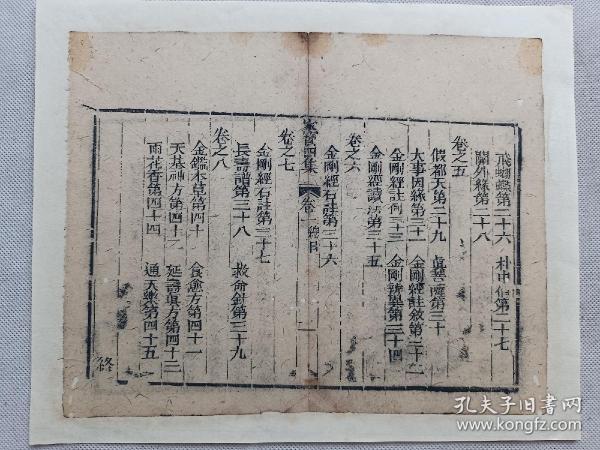 飛蝴蠂第二十六　朴中第二十七
關外緣第二十八
卷之五
假都天第二十九　真菩薩第三十
大事因緣第三十一　金剛經註敘第三十二
金剛經註例三十三　金剛辨異第三十四
金剛經讀法第三十五
卷之六
金剛經石註第三十六
家寶四集　卷一　總目　一
卷之七
金剛經石註第三十七
長壽譜第三十八　救命針第三十九
卷之八
金鑑本草第四十　食愈方第四十一
天基神方第四十二　延壽真方第四十三
雨花香第四十四　通天樂第四十五
終
孔夫子旧书网
www.kongfz.com